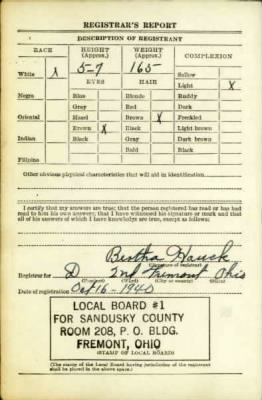 REGISTRAR'S REPORT
DESCRIPTION OF REGISTRANT
RACE HEIGHT (Approx.) WEIGHT (Approx.) COMPLEXION
White X 5-7 165 Sallow
EYES HAIR Light X
Negro Blue Blonde Ruddy
Gray Red Dark
Oriental Hazel Brown X Freckled
Brown X Black Light brown
Indian Black Gray Dark brown
Bald Black
Filipino
Other obvious physical characteristics that will aid in identification
I certify that my answers are true; that the person registered has read or has had
read to him his own answers; that I have witnessed his signature or mark and that
all of his answers of which I have knowledge are true, except as follows:
Bertha Hauck
(Signature of registrar)
Registrar for D 2nd Fremont Ohio
(Precinct) (Ward) (City or county) (State)
Date of registration Oct 16 - 1940
LOCAL BOARD #1
FOR SANDUSKY COUNTY
ROOM 208, P. O. BLDG.
FREMONT, OHIO
(STAMP OF LOCAL BOARD)
(The stamp of the Local Board having jurisdiction of the registrant
shall be placed in the above space.)